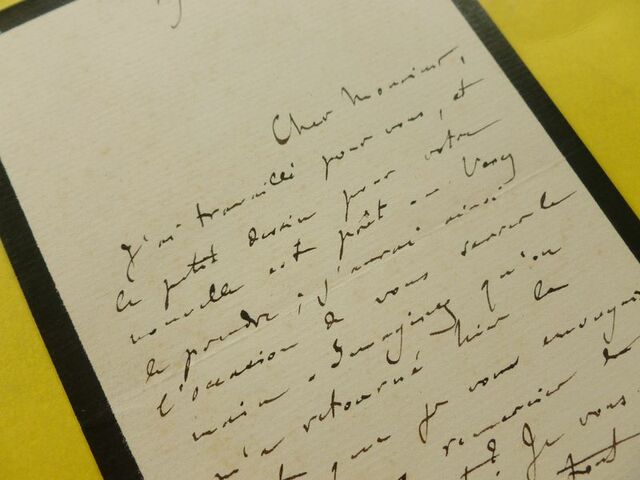 Cher Monsieur,
J'ai travaillé pour vous, et
le petit dessin pour votre
nouvelle est prêt. Venez
le prendre ; j'aurai ainsi
l'occasion de vous serrer la
main. Imaginez qu'on
m'a retourné hier la
que je vous envoyais
remercier de
Je vous
tout